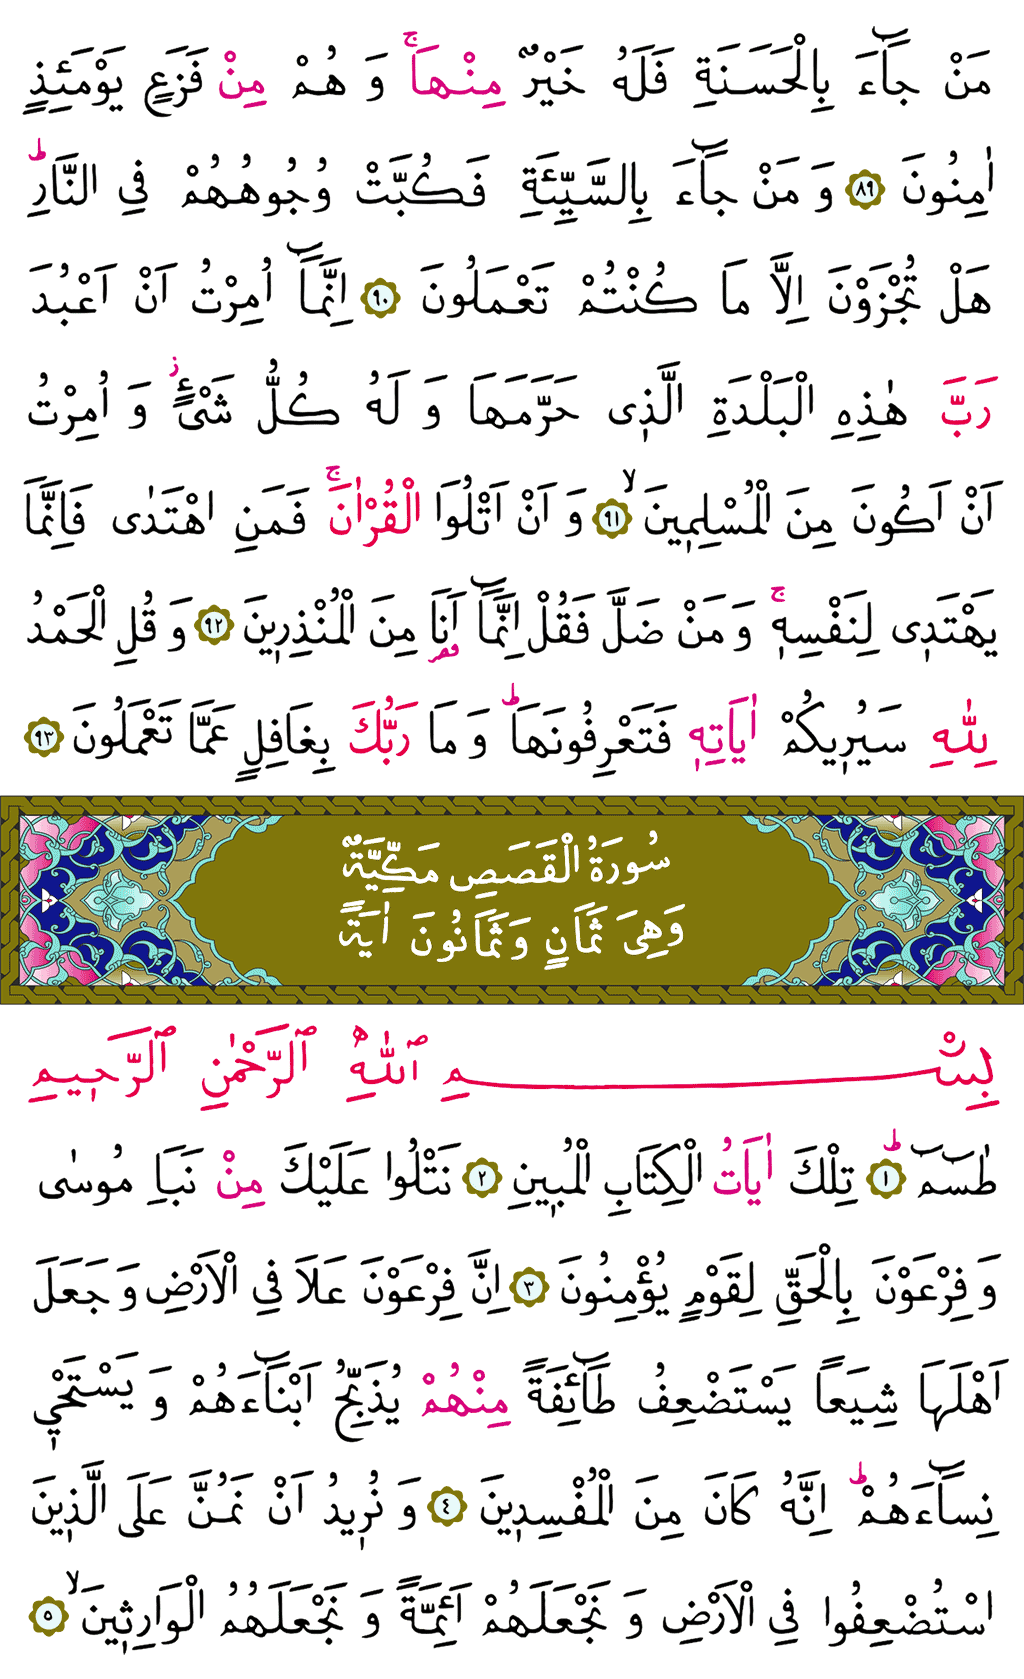 مَنْ جَٓاءَ بِالْحَسَنَةِ فَلَهُ خَيْرٌ مِنْهَاۚ وَ هُمْ مِنْ فَزَعٍ يَوْمَئِذٍ
اٰمِنُونَ ﴿٨٩﴾ وَ مَنْ جَٓاءَ بِالسَّيِّئَةِ فَكُبَّتْ وُجُوهُهُمْ فِي النَّارِؕ
هَلْ تُجْزَوْنَ اِلَّا مَا كُنْتُمْ تَعْمَلُونَ ﴿٩٠﴾ اِنَّمَٓا اُمِرْتُ اَنْ اَعْبُدَ
رَبَّ هٰذِهِ الْبَلْدَةِ الَّذ۪ى حَرَّمَهَا وَ لَهُ كُلُّ شَىْءٍؗ وَ اُمِرْتُ
اَنْ اَكُونَ مِنَ الْمُسْلِم۪ينَۙ ﴿٩١﴾ وَ اَنْ اَتْلُوَا الْقُرْاٰنَۚ فَمَنِ اهْتَدٰى فَاِنَّمَا
يَهْتَد۪ى لِنَفْسِه۪ۚ وَ مَنْ ضَلَّ فَقُلْ اِنَّمَٓا اَنَا۬ مِنَ الْمُنْذِر۪ينَ ﴿٩٢﴾ وَ قُلِ الْحَمْدُ
لِلّٰهِ سَيُر۪يكُمْ اٰيَاتِه۪ فَتَعْرِفُونَهَاؕ وَ مَا رَبُّكَ بِغَافِلٍ عَمَّا تَعْمَلُونَ ﴿٩٣﴾
سُورَةُ الْقَصَصِ مَكِّيَّةٌ
وَهِىَ ثَمَانٍ وَثَمَانُونَ اٰيَةً
بِسْمِ ٱللّٰهِ ٱلرَّحْمٰنِ ٱلرَّح۪يمِ
طٰسٓمٓؕ ﴿١﴾ تِلْكَ اٰيَاتُ الْكِتَابِ الْمُب۪ينِ ﴿٢﴾ نَتْلُوا عَلَيْكَ مِنْ نَبَاِ مُوسٰى
وَ فِرْعَوْنَ بِالْحَقِّ لِقَوْمٍ يُؤْمِنُونَ ﴿٣﴾ اِنَّ فِرْعَوْنَ عَلَا فِي الْاَرْضِ وَ جَعَلَ
اَهْلَهَا شِيَعًا يَسْتَضْعِفُ طَٓائِفَةً مِنْهُمْ يُذَبِّحُ اَبْنَٓاءَهُمْ وَ يَسْتَحْي۪
نِسَٓاءَهُمْؕ اِنَّهُ كَانَ مِنَ الْمُفْسِد۪ينَ ﴿٤﴾ وَ نُر۪يدُ اَنْ نَمُنَّ عَلَى الَّذ۪ينَ
اسْتُضْعِفُوا فِي الْاَرْضِ وَ نَجْعَلَهُمْ اَئِمَّةً وَ نَجْعَلَهُمُ الْوَارِث۪ينَۙ ﴿٥﴾